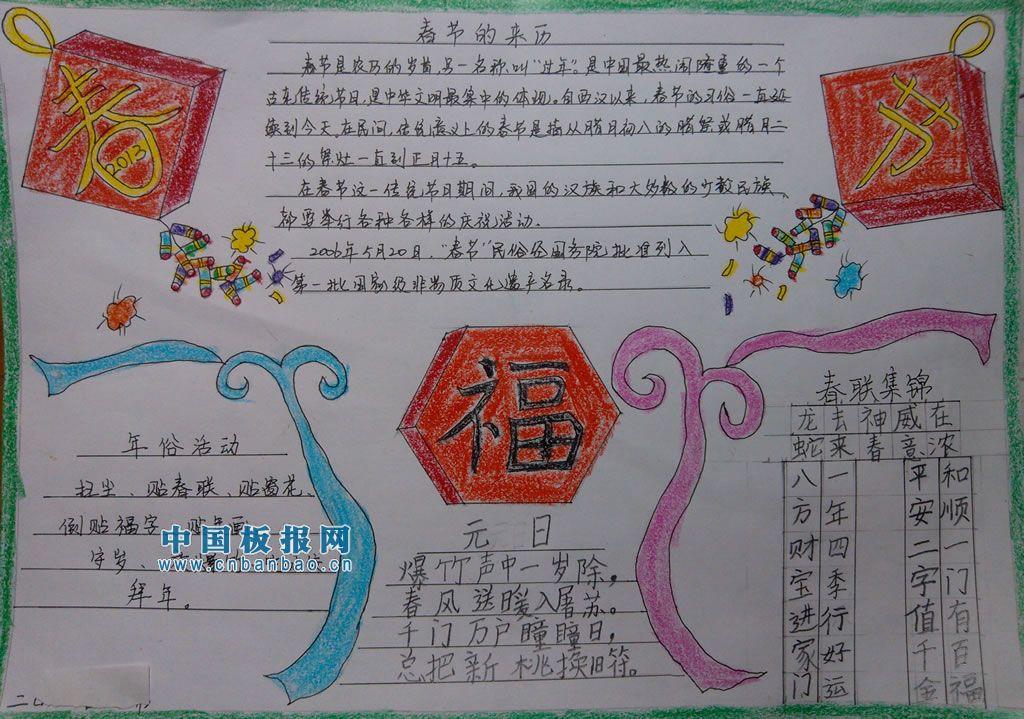 春
2013
节
春节的来历
春节是农历的岁首,另一名称叫“过年”,是中国最热闹隆重的一个
古老传统节日,是中华文明最集中的体现。自西汉以来,春节的习俗一直延
续到今天,在民间,传统意义上的春节是指从腊月初八的腊祭或腊月二
十三的祭灶一直到正月十五。
在春节这一传统节日期间,我国的汉族和大多数的少数民族
都要举行各种各样的庆祝活动.
2006年5月20日,“春节”民俗经国务院批准列入
第一批国家级非物质文化遗产名录。
福
年俗活动
扫尘、贴春联、贴窗花、
倒贴福字、贴年画
守岁、
拜年。
中国板报网
www.cnbanbao.cn
元日
爆竹声中一岁除,
春风送暖入屠苏。
千门万户瞳瞳日,
总把新桃换旧符。
春联集锦
龙去神威在
蛇来春意浓
八方财宝进家门
一年四季行好运
平安二字值千金
和顺一门有百福